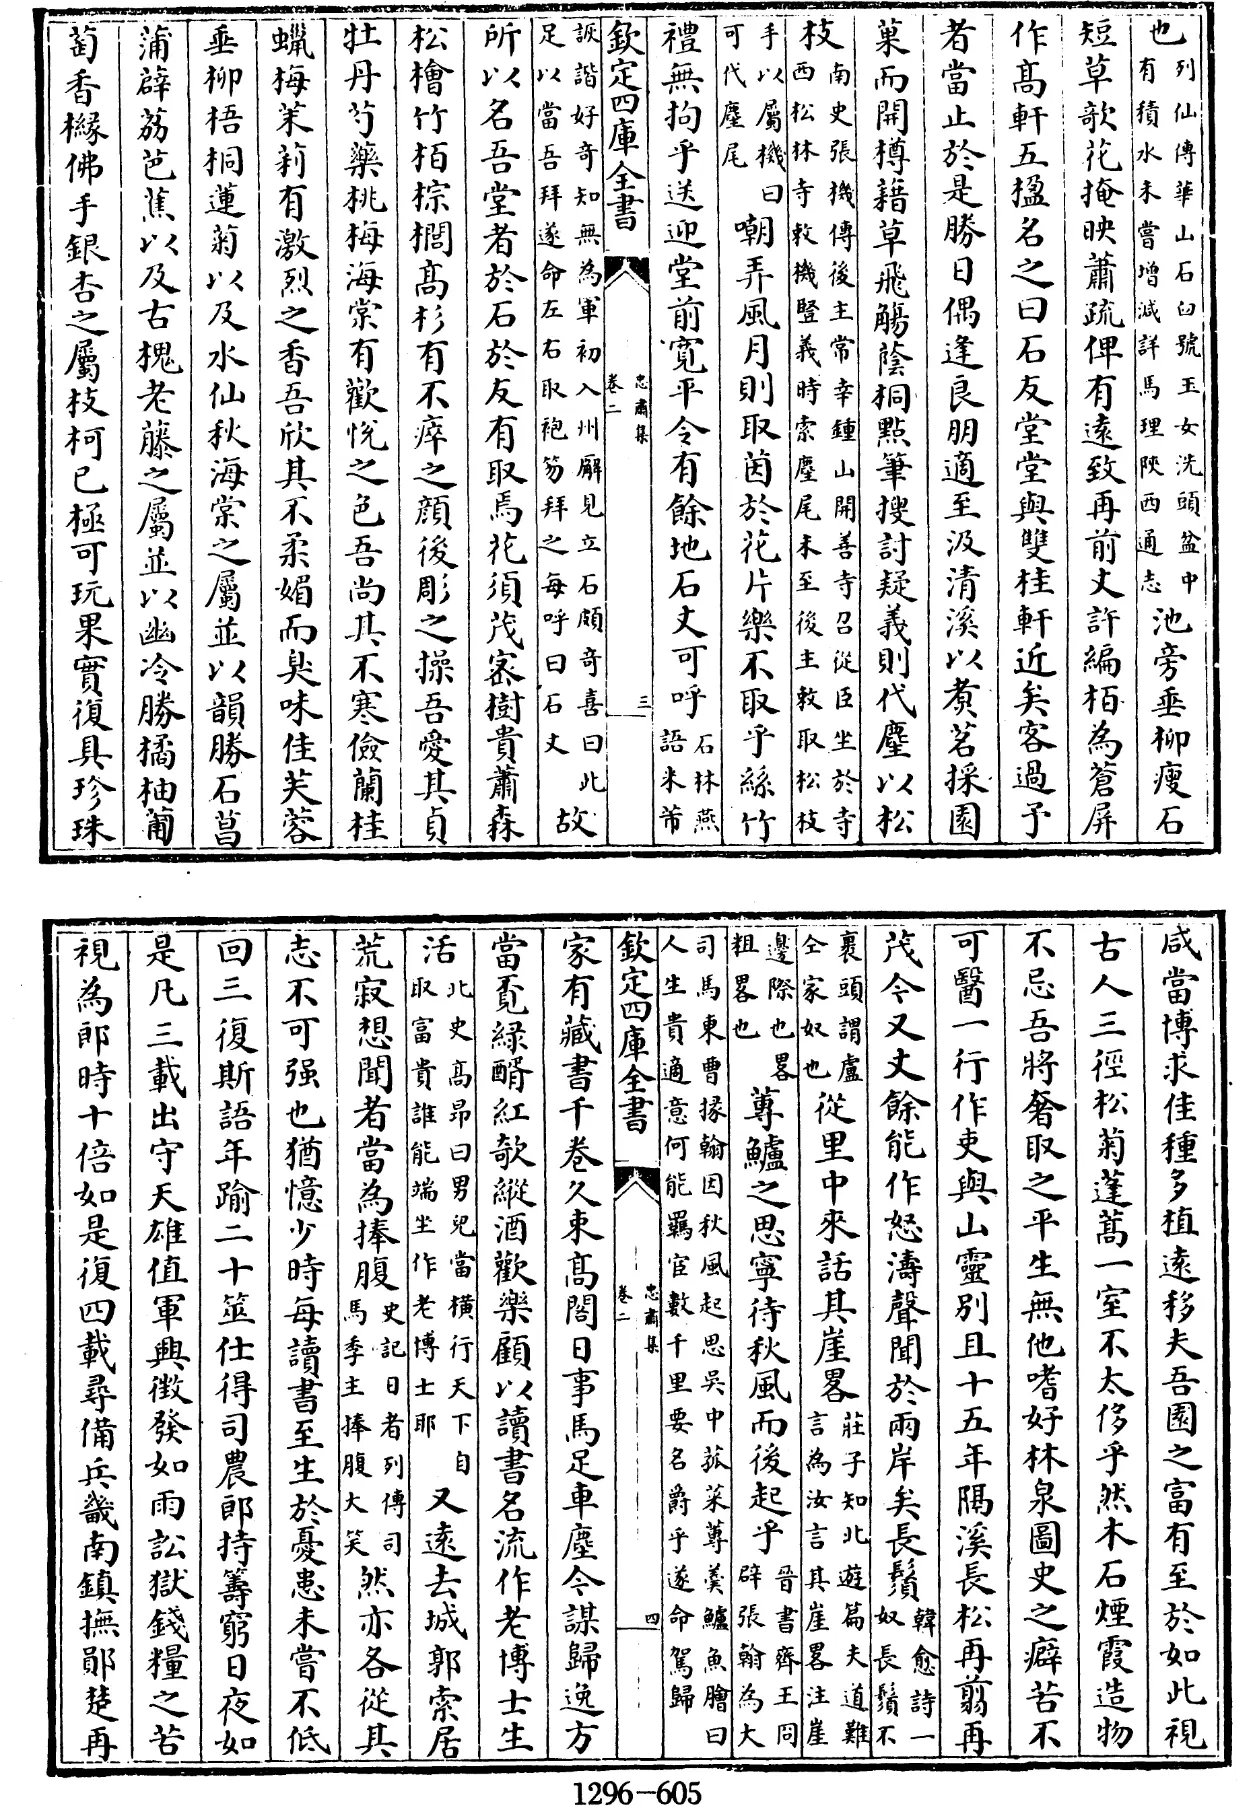 也列仙傳華山石臼號玉女洗頭盆中有積水未嘗增減詳馬理陝西通志池旁垂柳瘦石
短草欹花掩映蕭疏俾有遠致再前丈許編栢為蒼屏
作髙軒五楹名之曰石友堂堂與雙桂軒近矣客過予
者當止於是勝日偶逢良朋適至汲清溪以煑茗採園
菓而開樽藉草飛觴蔭桐點筆搜討疑義則代麈以松
枝南史張機傳後主常幸鍾山開善寺召從臣坐於寺西松林寺敕機豎義時索麈尾未至後主敕取松枝
手以屬機曰可代麈尾嘲弄風月則取茵於花片樂不取乎絲竹
禮無拘乎送迎堂前寛平令有餘地石丈可呼石林燕語米芾
欽定四庫全書
忠肅集
卷二
三
詼譎好奇知無為軍初入州廨見立石頗奇喜曰此足以當吾拜遂命左右取袍笏拜之每呼曰石丈故
所以名吾堂者於石於友有取焉花須茂宻樹貴蕭森
松檜竹栢棕櫚髙杉有不瘁之顔後彫之操吾愛其貞
牡丹芍藥桃梅海棠有歡悅之色吾尚其不寒儉蘭桂
蠟梅茉莉有激烈之香吾欣其不柔媚而臭味佳芙蓉
垂柳梧桐蓮菊以及水仙秋海棠之屬並以韻勝石菖
蒲薜荔芭蕉以及古槐老藤之屬並以幽冷勝橘柚葡
萄香櫞佛手銀杏之屬枝柯已極可玩果實復具珍珠
咸當博求佳種多植遠移夫吾園之富有至於如此視
古人三徑松菊蓬蒿一室不太侈乎然木石煙霞造物
不忌吾將奢取之平生無他嗜好林泉圖史之癖苦不
可醫一行作吏與山靈別且十五年隅溪長松再翦再
茂今又丈餘能作怒濤聲聞於兩岸矣長鬚韓愈詩一奴長鬚不
裹頭謂盧仝家奴也從里中來話其崖畧莊子知北遊篇夫道難言為汝言其崖畧注崖
邊際也畧粗畧也蓴鱸之思寧待秋風而後起乎晉書齊王冏辟張翰為大
司馬東曹掾翰因秋風起思吳中菰菜蓴羮鱸魚膾曰人生貴適意何能羈宦數千里要名爵乎遂命駕歸
欽定四庫全書
忠肅集
卷二
四
家有藏書千卷久束髙閣日事馬足車塵今謀歸逸方
當覔緑醑紅欹縱酒歡樂顧以讀書名流作老博士生
活北史髙昂曰男兒當橫行天下自取富貴誰能端坐作老博士耶又遠去城郭索居
荒寂想聞者當為捧腹史記日者列傳司馬季主捧腹大笑然亦各從其
志不可强也猶憶少時每讀書至生於憂患未嘗不低
回三復斯語年踰二十筮仕得司農郎持籌窮日夜如
是凡三載出守天雄值軍興徵發如雨訟獄錢糧之苦
視為郎時十倍如是復四載尋備兵畿南鎮撫鄖楚再
1296-605